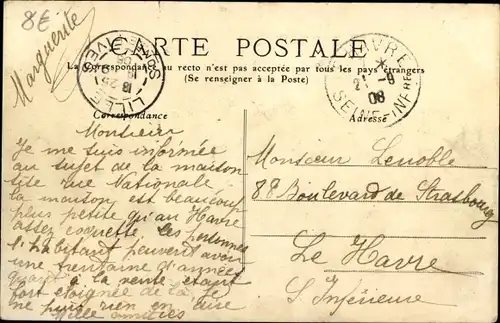 8E
Marguerite
CARTE POSTALE
La Correspondance au recto n'est pas acceptée par tous les pays étrangers
(Se renseigner à la Poste)
Correspondance
Adresse
LE HAVRE
SEINE-INFRE
08
LILLE
SOMME
Monsieur
Je me suis informée
au sujet de la maison
site rue Nationale
la maison est beaucoup
plus petite qu'au Havre
assez coquette. Les personnes
l'habitant peuvent avoir
une trentaine d'années
quant à la vente étant
fort éloignée de là je
ne puis rien en dire
Mille amitiés
Monsieur Lenoble
82 Boulevard de Strasbourg
Le Havre
S. Inférieure